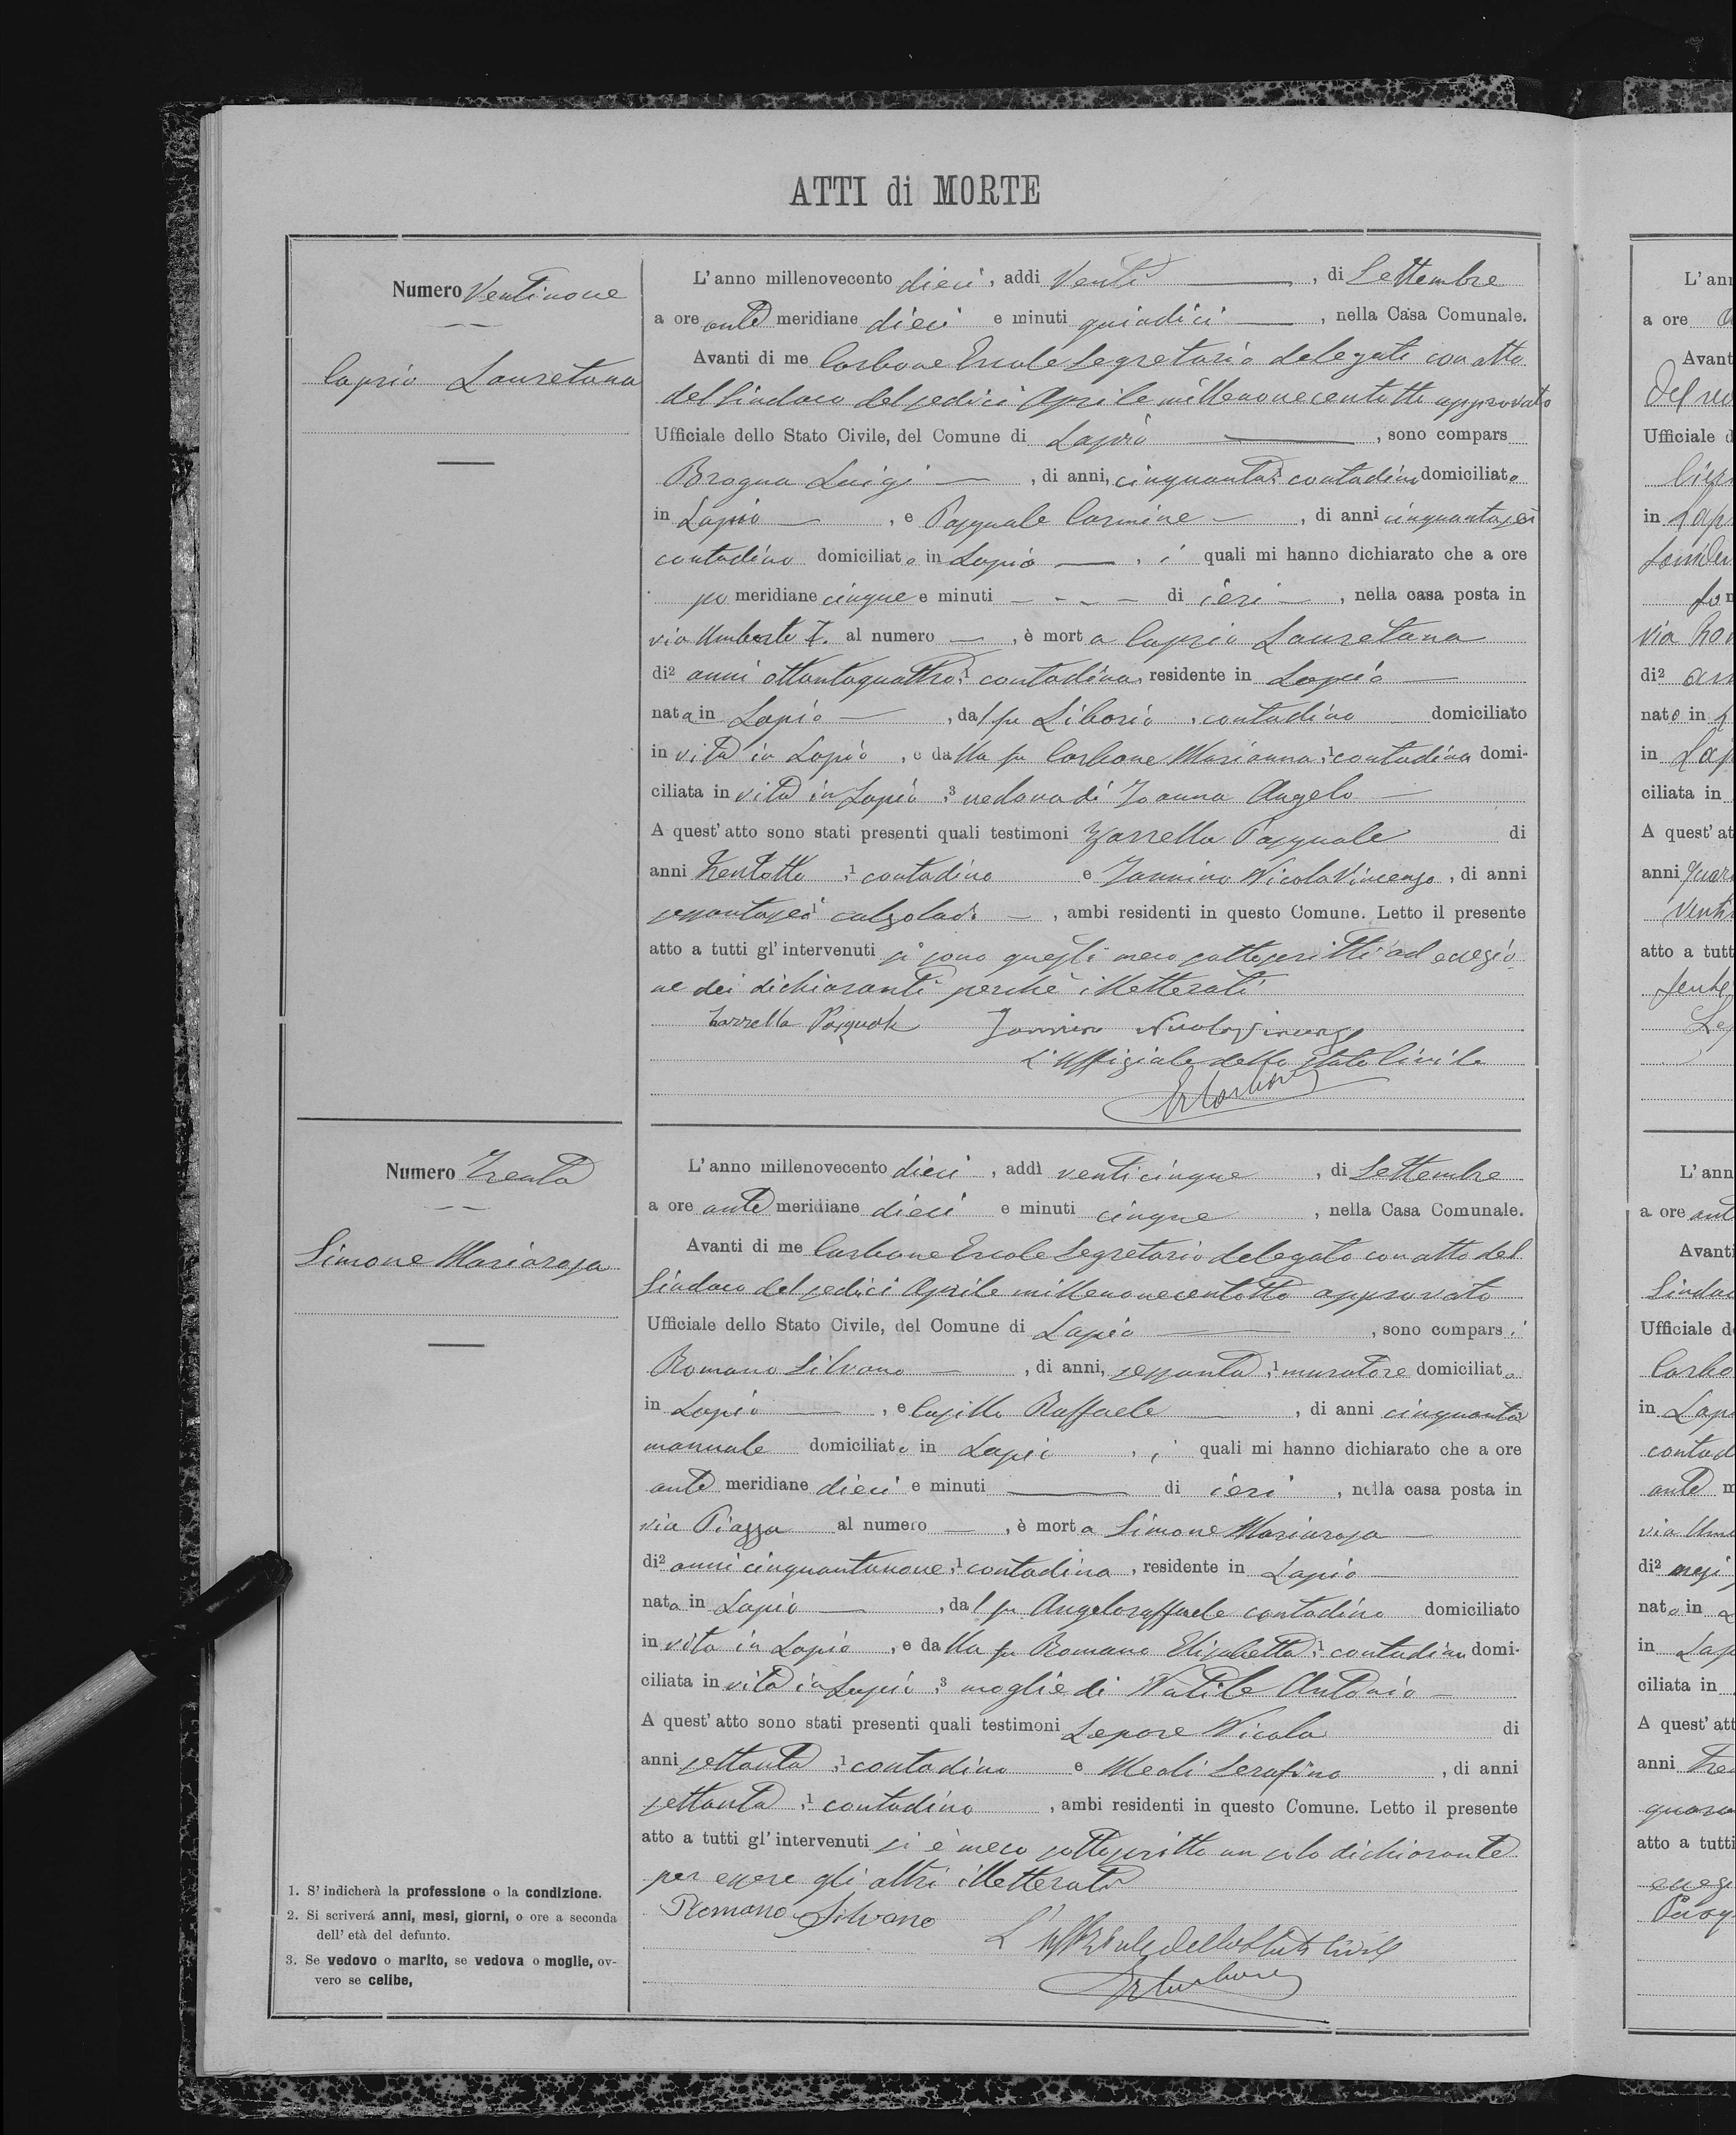 ATTI di MORTE
Numero Ventinove
Caprio Lauretana
L'anno millenovecento dieci, addi Venti, di Settembre
a ore ante meridiane dieci e minuti quindici, nella Casa Comunale.
Avanti di me Carbone Ercole Segretario delegato con atto
del Sindaco del sedici Aprile millenovecentotto approvato
Ufficiale dello Stato Civile, del Comune di Lapio, sono compars
Bragna Luigi, di anni, cinquanta, contadino domiciliato
in Lapio, e Pasquale Carmine, di anni cinquantasei
contadino domiciliato in Lapio, i quali mi hanno dichiarato che a ore
po meridiane cinque e minuti - - - - di ieri, nella casa posta in
via Umberto I. al numero —, è morta Caprio Lauretana
di² anni ottantaquattro,¹ contadina, residente in Lapio
nata in Lapio, dal fu Liborio, contadino domiciliato
in vita in Lapio, e dalla fu Carbone Marianna,¹ contadina domi-
ciliata in vita in Lapio,³ vedova di Joanna Angelo
A quest'atto sono stati presenti quali testimoni Zarrella Pasquale di
anni trentotto,¹ contadino e Jannino Nicola Vincenzo, di anni
sessantasei¹ calzolaio, ambi residenti in questo Comune. Letto il presente
atto a tutti gl'intervenuti si sono questi meco sottoscritti ad eccezio
ne dei dichiaranti perchè illetterati
Zarrella Pasquale Jannino Nicola Vincenzo
L'Uffiziale dello Stato Civile
E Carbone
Numero Trenta
Simone Mariarosa
L'anno millenovecento dieci, addì venticinque, di Settembre
a ore ante meridiane dieci e minuti cinque, nella Casa Comunale.
Avanti di me Carbone Ercole Segretario delegato con atto del
Sindaco del sedici Aprile millenovecentotto approvato
Ufficiale dello Stato Civile, del Comune di Lapio, sono comparsi
Romano Silvano, di anni, sessanta,¹ muratore domiciliato
in Lapio, e Capillo Raffaele, di anni cinquanta
manuale domiciliato in Lapio, i quali mi hanno dichiarato che a ore
ante meridiane dieci e minuti — di ieri, nella casa posta in
via Piazza al numero —, è morta Simone Mariarosa
di² anni cinquantanove,¹ contadina, residente in Lapio
nata in Lapio, dal fu Angeloraffaele contadino domiciliato
in vita in Lapio, e dalla fu Romano Elisabetta,¹ contadina domi-
ciliata in vita in Lapio,³ moglie di Natile Antonio
A quest'atto sono stati presenti quali testimoni Lepore Nicola di
anni settanta,¹ contadino e Meoli Serafino, di anni
settanta,¹ contadino, ambi residenti in questo Comune. Letto il presente
atto a tutti gl'intervenuti si è meco sottoscritto un solo dichiarante
per essere gli altri illetterati
Romano Silvano
L'Uffiziale dello Stato Civile
E Carbone
1. S'indicherà la professione o la condizione.
2. Si scriverà anni, mesi, giorni, o ore a seconda
dell'età del defunto.
3. Se vedovo o marito, se vedova o moglie, ov-
vero se celibe,